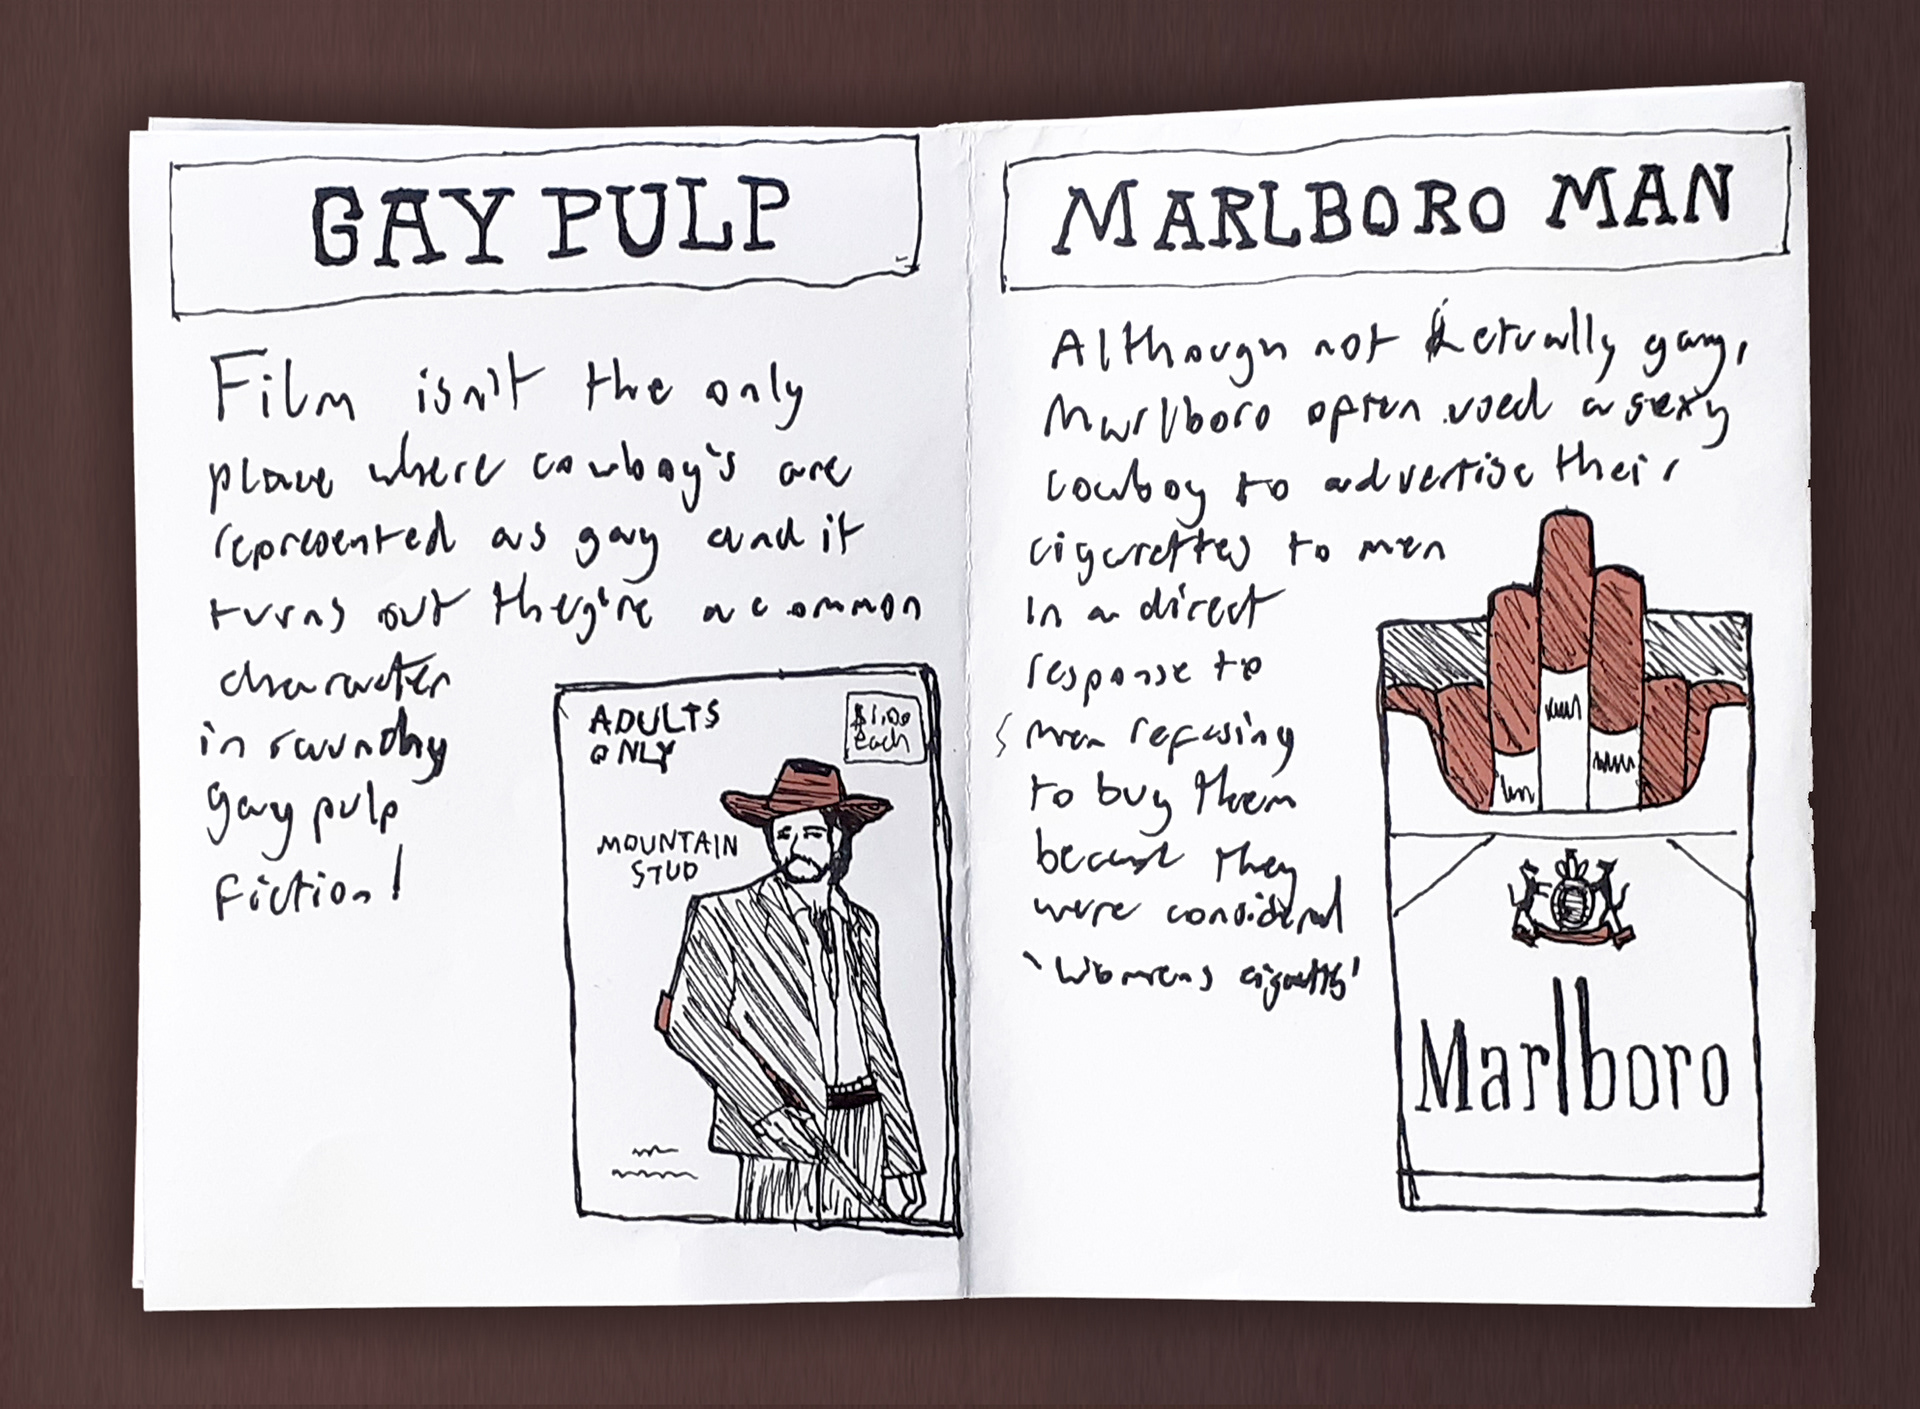 GAY PULP
Film isn't the only
place where cowboy's are
represented as gay and it
turns out they're a common
character
in raunchy
gay pulp
fiction!
ADULTS
ONLY
$1.00
each
MOUNTAIN
STUD
MARLBORO MAN
Although not actually gay,
Marlboro often used a sexy
cowboy to advertise their
cigarettes to men
in a direct
response to
men refusing
to buy them
because they
were considered
'womens cigarettes'
Marlboro